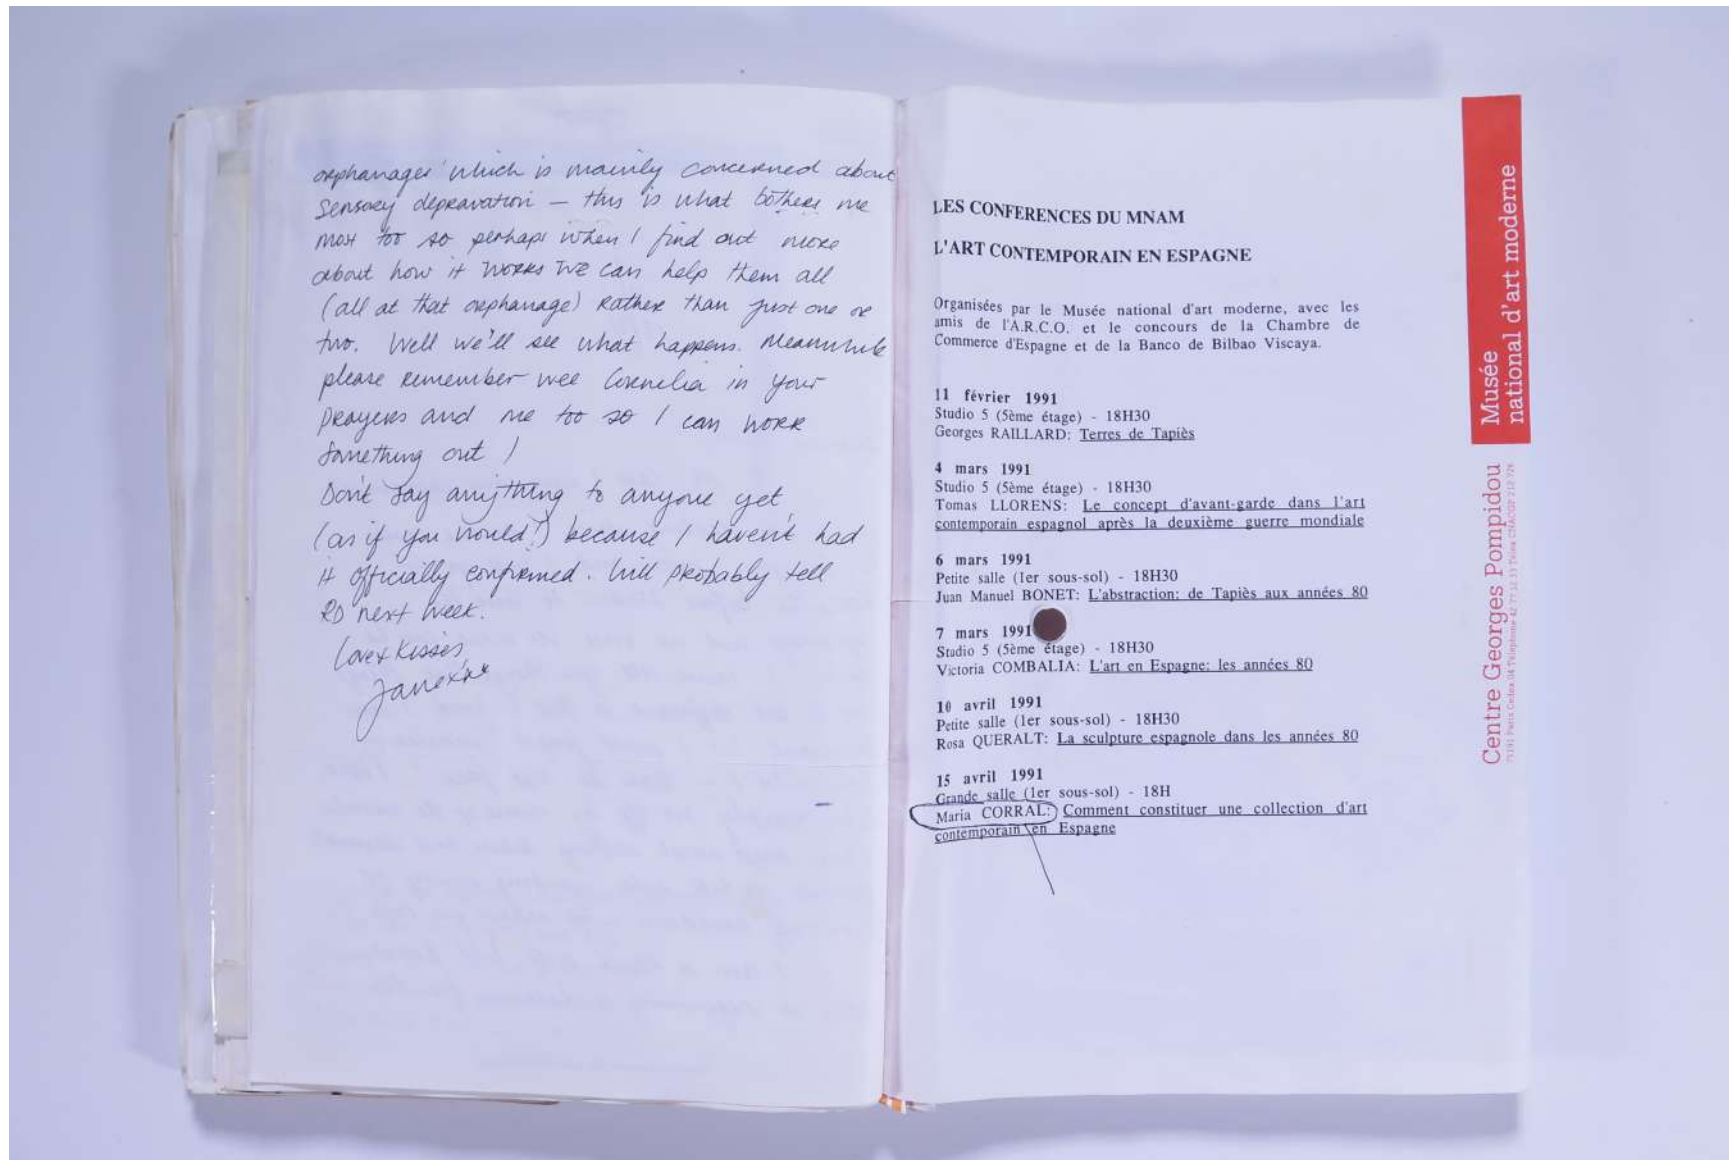 orphanages' which is mainly concerned about
sensory depravation – this is what bothers me
most too so perhaps when I find out more
about how it works we can help them all
(all at that orphanage) rather than just one or
two. Well we'll see what happens. Meanwhile
please remember wee Cornelia in your
prayers and me too so I can work
something out !
Don't say anything to anyone yet,
(as if you would!) because I haven't had
it officially confirmed. Will probably tell
RO next week.
Love & Kisses
LES CONFERENCES DU MNAM
L'ART CONTEMPORAIN EN ESPAGNE
Organisées par le Musée national d'art moderne, avec les
amis de l'A.R.C.O. et le concours de la Chambre de
Commerce d'Espagne et de la Banco de Bilbao Viscaya.
11 février 1991
Studio 5 (5ème étage) - 18H30
Georges RAILLARD: Terres de Tapiès
4 mars 1991
Studio 5 (5ème étage) - 18H30
Tomas LLORENS: Le concept d'avant-garde dans l'art
contemporain espagnol après la deuxième guerre mondiale
6 mars 1991
Petite salle (1er sous-sol) - 18H30
Juan Manuel BONET: L'abstraction: de Tapiès aux années 80
7 mars 1991
Studio 5 (5ème étage) - 18H30
Victoria COMBALIA: L'art en Espagne: les années 80
10 avril 1991
Petite salle (1er sous-sol) - 18H30
Rosa QUERALT: La sculpture espagnole dans les années 80
15 avril 1991
Grande salle (1er sous-sol) - 18H
Maria CORRAL: Comment constituer une collection d'art
contemporain en Espagne
Musée
national d'art moderne
Centre Georges Pompidou